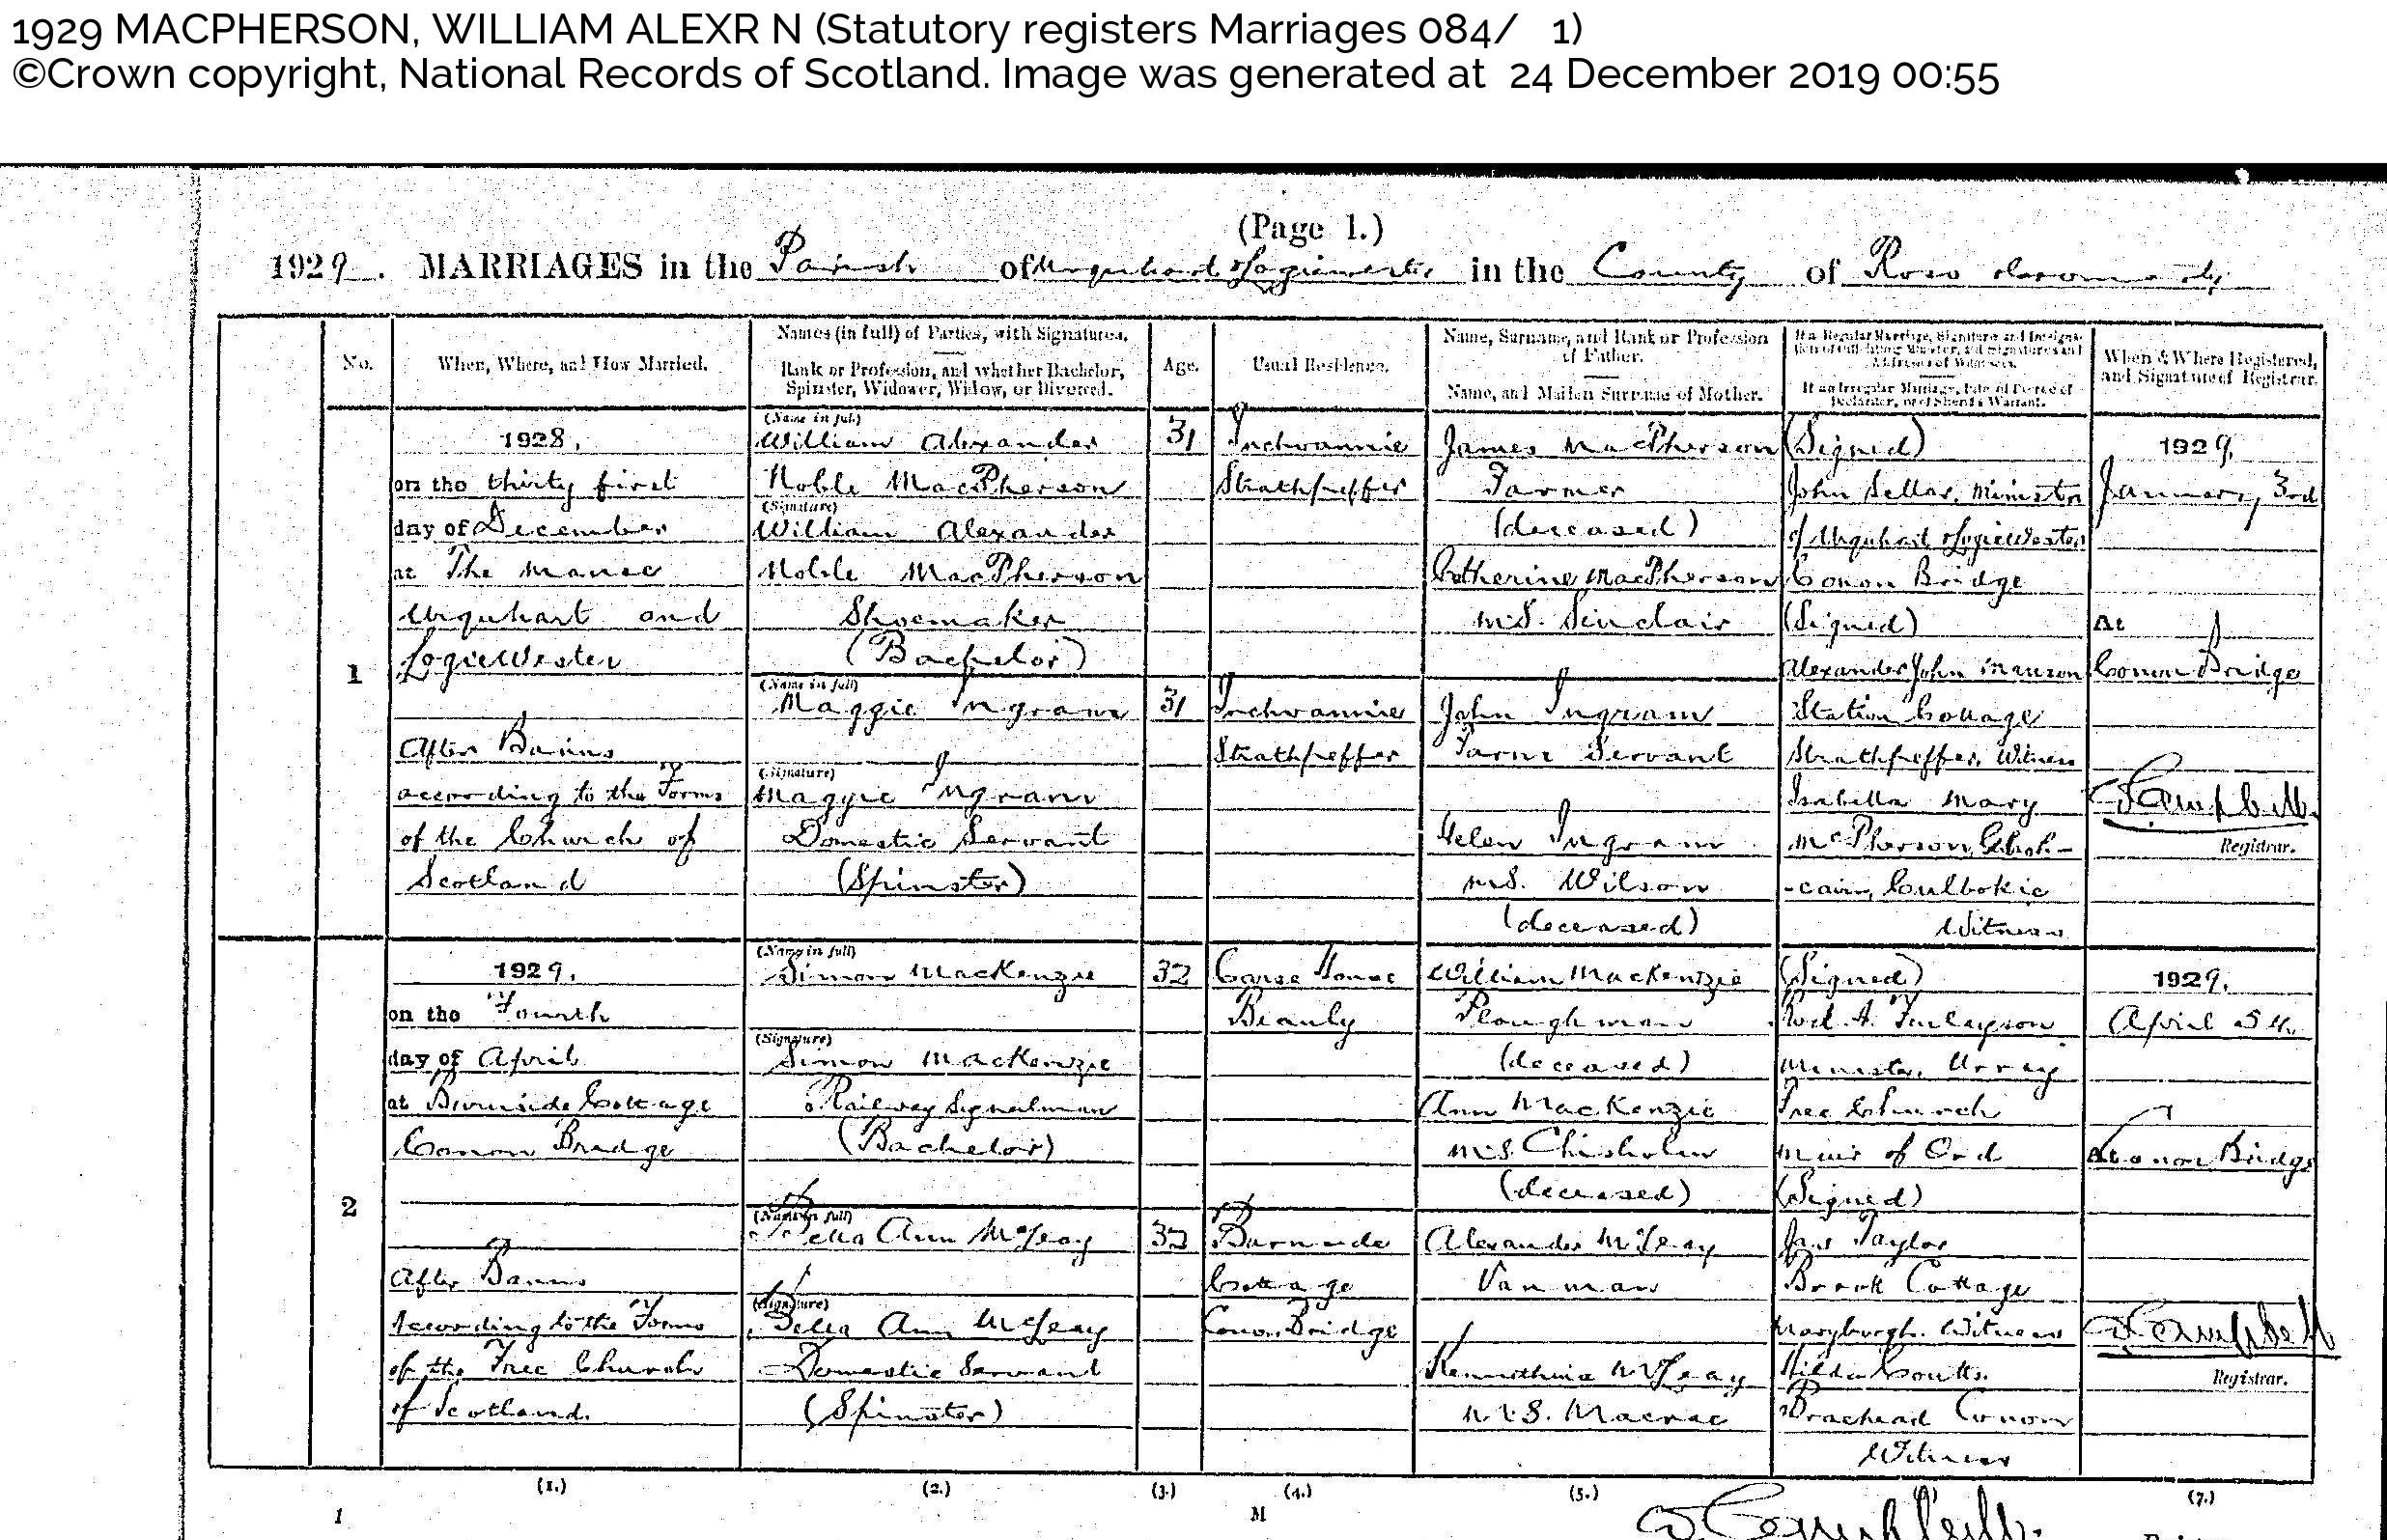 1929 MACPHERSON, WILLIAM ALEXR N (Statutory registers Marriages 084/ 1)
©Crown copyright, National Records of Scotland. Image was generated at 24 December 2019 00:55
(Page 1.)
1929. MARRIAGES in the Parish of Urquhart & Logiewester in the County of Ross & Cromarty
No.
When, Where, and How Married.
Names (in full) of Parties, with Signatures.
Rank or Profession, and whether Bachelor,
Spinster, Widower, Widow, or Divorced.
Age.
Usual Residence.
Name, Surname, and Rank or Profession
of Father.
Name, and Maiden Surname of Mother.
If a Regular Marriage, Signature and Designa-
tion of officiating Minister, and Signatures and
Addresses of Witnesses.
If an Irregular Marriage, Date of Decree of
Declarator, or of Sheriff's Warrant.
When & Where Registered,
and Signature of Registrar.
1
1928.
on the thirty first
day of December
at The Manse
Urquhart and
Logiewester
After Banns
according to the Forms
of the Church of
Scotland
(Name in full)
William Alexander
Noble MacPherson
(Signature)
William Alexander
Noble MacPherson
Shoemaker
(Bachelor)
(Name in full)
Maggie Ingram
(Signature)
Maggie Ingram
Domestic Servant
(Spinster)
31
31
Inchvannie
Strathpeffer
Inchvannie
Strathpeffer
James MacPherson
Farmer
(deceased)
Catherine MacPherson
m.S. Sinclair
John Ingram
Farm Servant
Helen Ingram
m.S. Wilson
(deceased)
(Signed)
John Sellar, Minister
of Urquhart & Logiewester
Conon Bridge
(Signed)
Alexander John Manson
Station Cottage
Strathpeffer, Witness
Isabella Mary
McPherson,
-cairn, Culbokie
Witness
1929.
January, 3rd
At
Conon Bridge
D Campbell.
Registrar.
2
1929.
on the Fourth
day of April
at Burnside Cottage
Conon Bridge
After Banns
According to the Forms
of the Free Church
of Scotland.
(Name in full)
Simon MacKenzie
(Signature)
Simon MacKenzie
Railway Signalman
(Bachelor)
(Name in full)
Bella Ann McLeay
(Signature)
Bella Ann McLeay
Domestic Servant
(Spinster)
32
32
Carse House
Beauly
Burnside
Cottage
Conon Bridge
William MacKenzie
Ploughman
(deceased)
Ann MacKenzie
m.S. Chisholm
(deceased)
Alexander McLeay
Vanman
Kennethina McLeay
m.S. Macrae
(Signed)
Rod. A. Finlayson
Minister, Urray
Free Church
Muir of Ord
(Signed)
Jas Taylor
Brook Cottage
Maryburgh. Witness
Hilda Coutts.
Braehead Conon
Witness
1929.
April 5th.
At Conon Bridge
D Campbell
Registrar.
(1.) (2.) (3.) (4.) (5.) (7.)
1
M
D. Campbell.